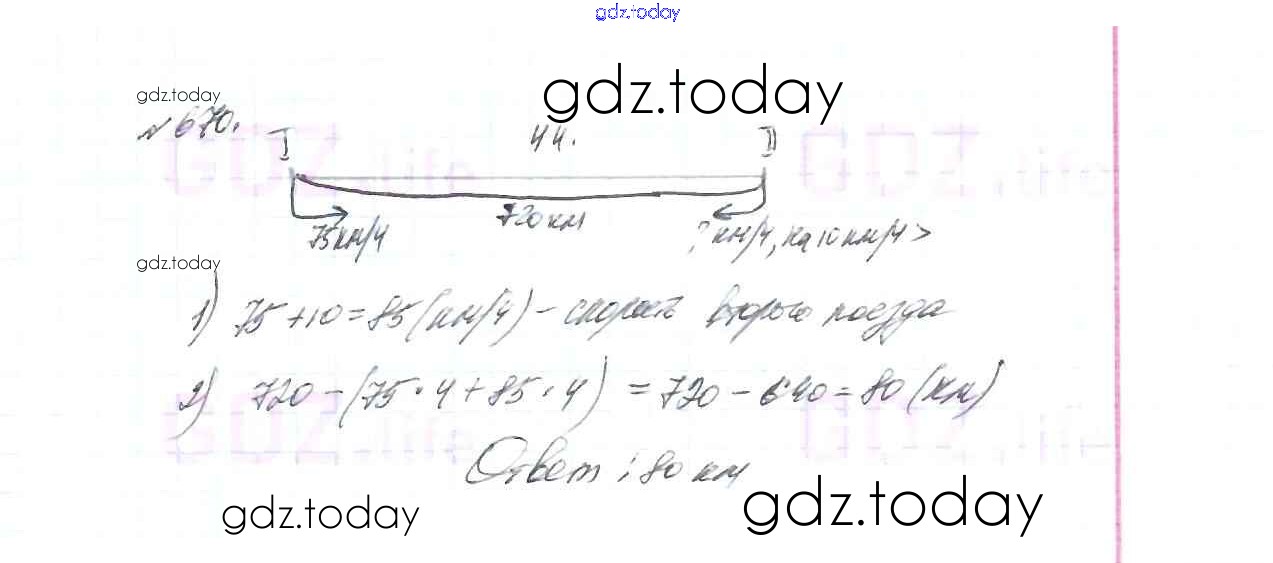 gdz.today
gdz.today
gdz.today
№ 670.
I 4ч. II
GDZ.life GDZ.life
720 км
75км/ч ? км/ч, на 10 км/ч >
gdz.today
1) 75+10=85(км/ч) - скорость второго поезда
2) 720-(75·4+85·4) = 720-640=80 (км)
GDZ.life GDZ.life
Ответ: 80 км
gdz.today
gdz.today